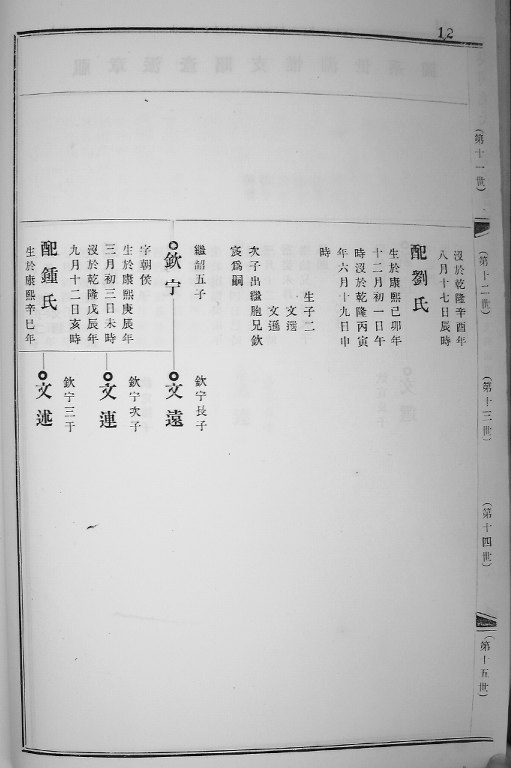 12
(第十一世)
(第十二世)
(第十三世)
(第十四世)
(第十五世)
沒於乾隆辛酉年
八月十七日辰時
配劉氏
生於康熙己卯年
十二月初一日午
時沒於乾隆丙寅
年六月十九日申
時
生子二
文選
文遜
次子出繼胞兄欽
宸為嗣
繼韶五子
欽宁
字朝侯
生於康熙庚辰年
三月初三日未時
沒於乾隆戊辰年
九月十二日亥時
配鍾氏
生於康熙辛巳年
欽宁長子
文遠
欽宁次子
文連
欽宁三子
文述